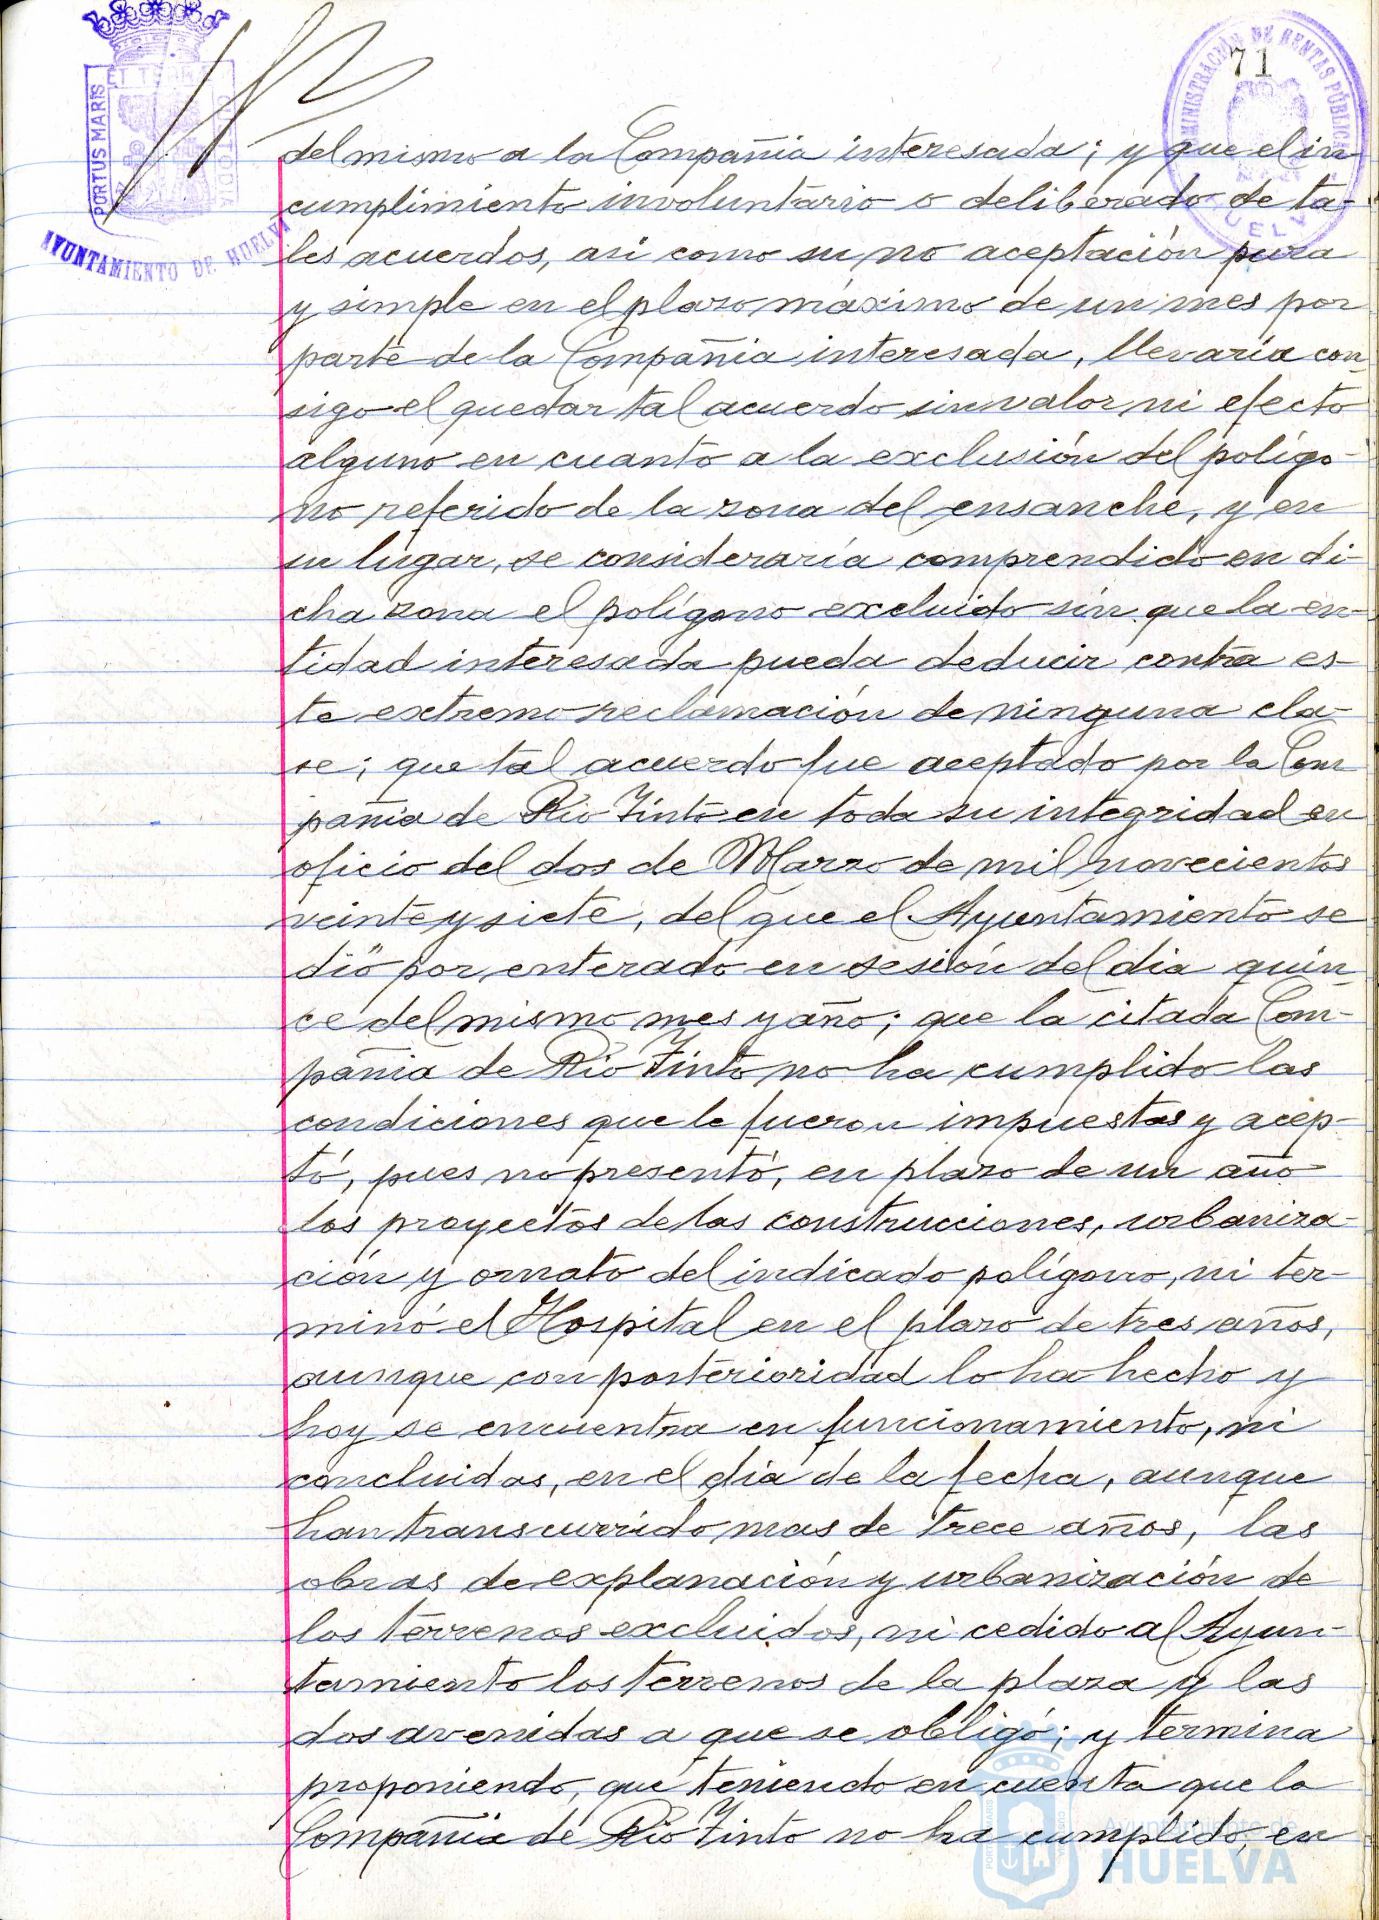 71
PORTUS MARIS ET TERRÆ CUSTODIA
AYUNTAMIENTO DE HUELVA
ADMINISTRACIÓN DE RENTAS PÚBLICAS
HUELVA
del mismo a la Compañia interesada; y que el in-
cumplimiento involuntario o deliberado de ta-
les acuerdos, asi como su no aceptación pura
y simple en el plazo máximo de un mes por
parte de la Compañia interesada, llevaria con-
sigo el quedar tal acuerdo sin valor ni efecto
alguno en cuanto a la exclusión del polígo-
no referido de la zona del ensanche, y en
su lugar, se consideraría comprendido en di-
cha zona el polígono excluido sin que la en-
tidad interesada pueda deducir contra es-
te extremo reclamación de ninguna cla-
se; que tal acuerdo fue aceptado por la Com
pañia de Rio Tinto en toda su integridad en
oficio del dos de Marzo de mil novecientos
veinte y siete, del que el Ayuntamiento se
dió por enterado en sesión del dia quin-
ce del mismo mes y año; que la citada Com-
pañia de Rio Tinto no ha cumplido las
condiciones que le fueron impuestas y acep-
tó, pues no presentó, en plazo de un año
los proyectos de las construcciones, urbaniza-
ción y ornato del indicado polígono, ni ter-
minó el Hospital en el plazo de tres años,
aunque con posterioridad lo ha hecho y
hoy se encuentra en funcionamiento, ni
concluidas, en el dia de la fecha, aunque
han transcurrido mas de trece años, las
obras de explanación y urbanización de
los terrenos excluidos, ni cedido al Ayun-
tamiento los terrenos de la plaza y las
dos avenidas a que se obligó; y termina
proponiendo, que teniendo en cuenta que la
Compañia de Rio Tinto no ha cumplido, en
Ayuntamiento de
HUELVA